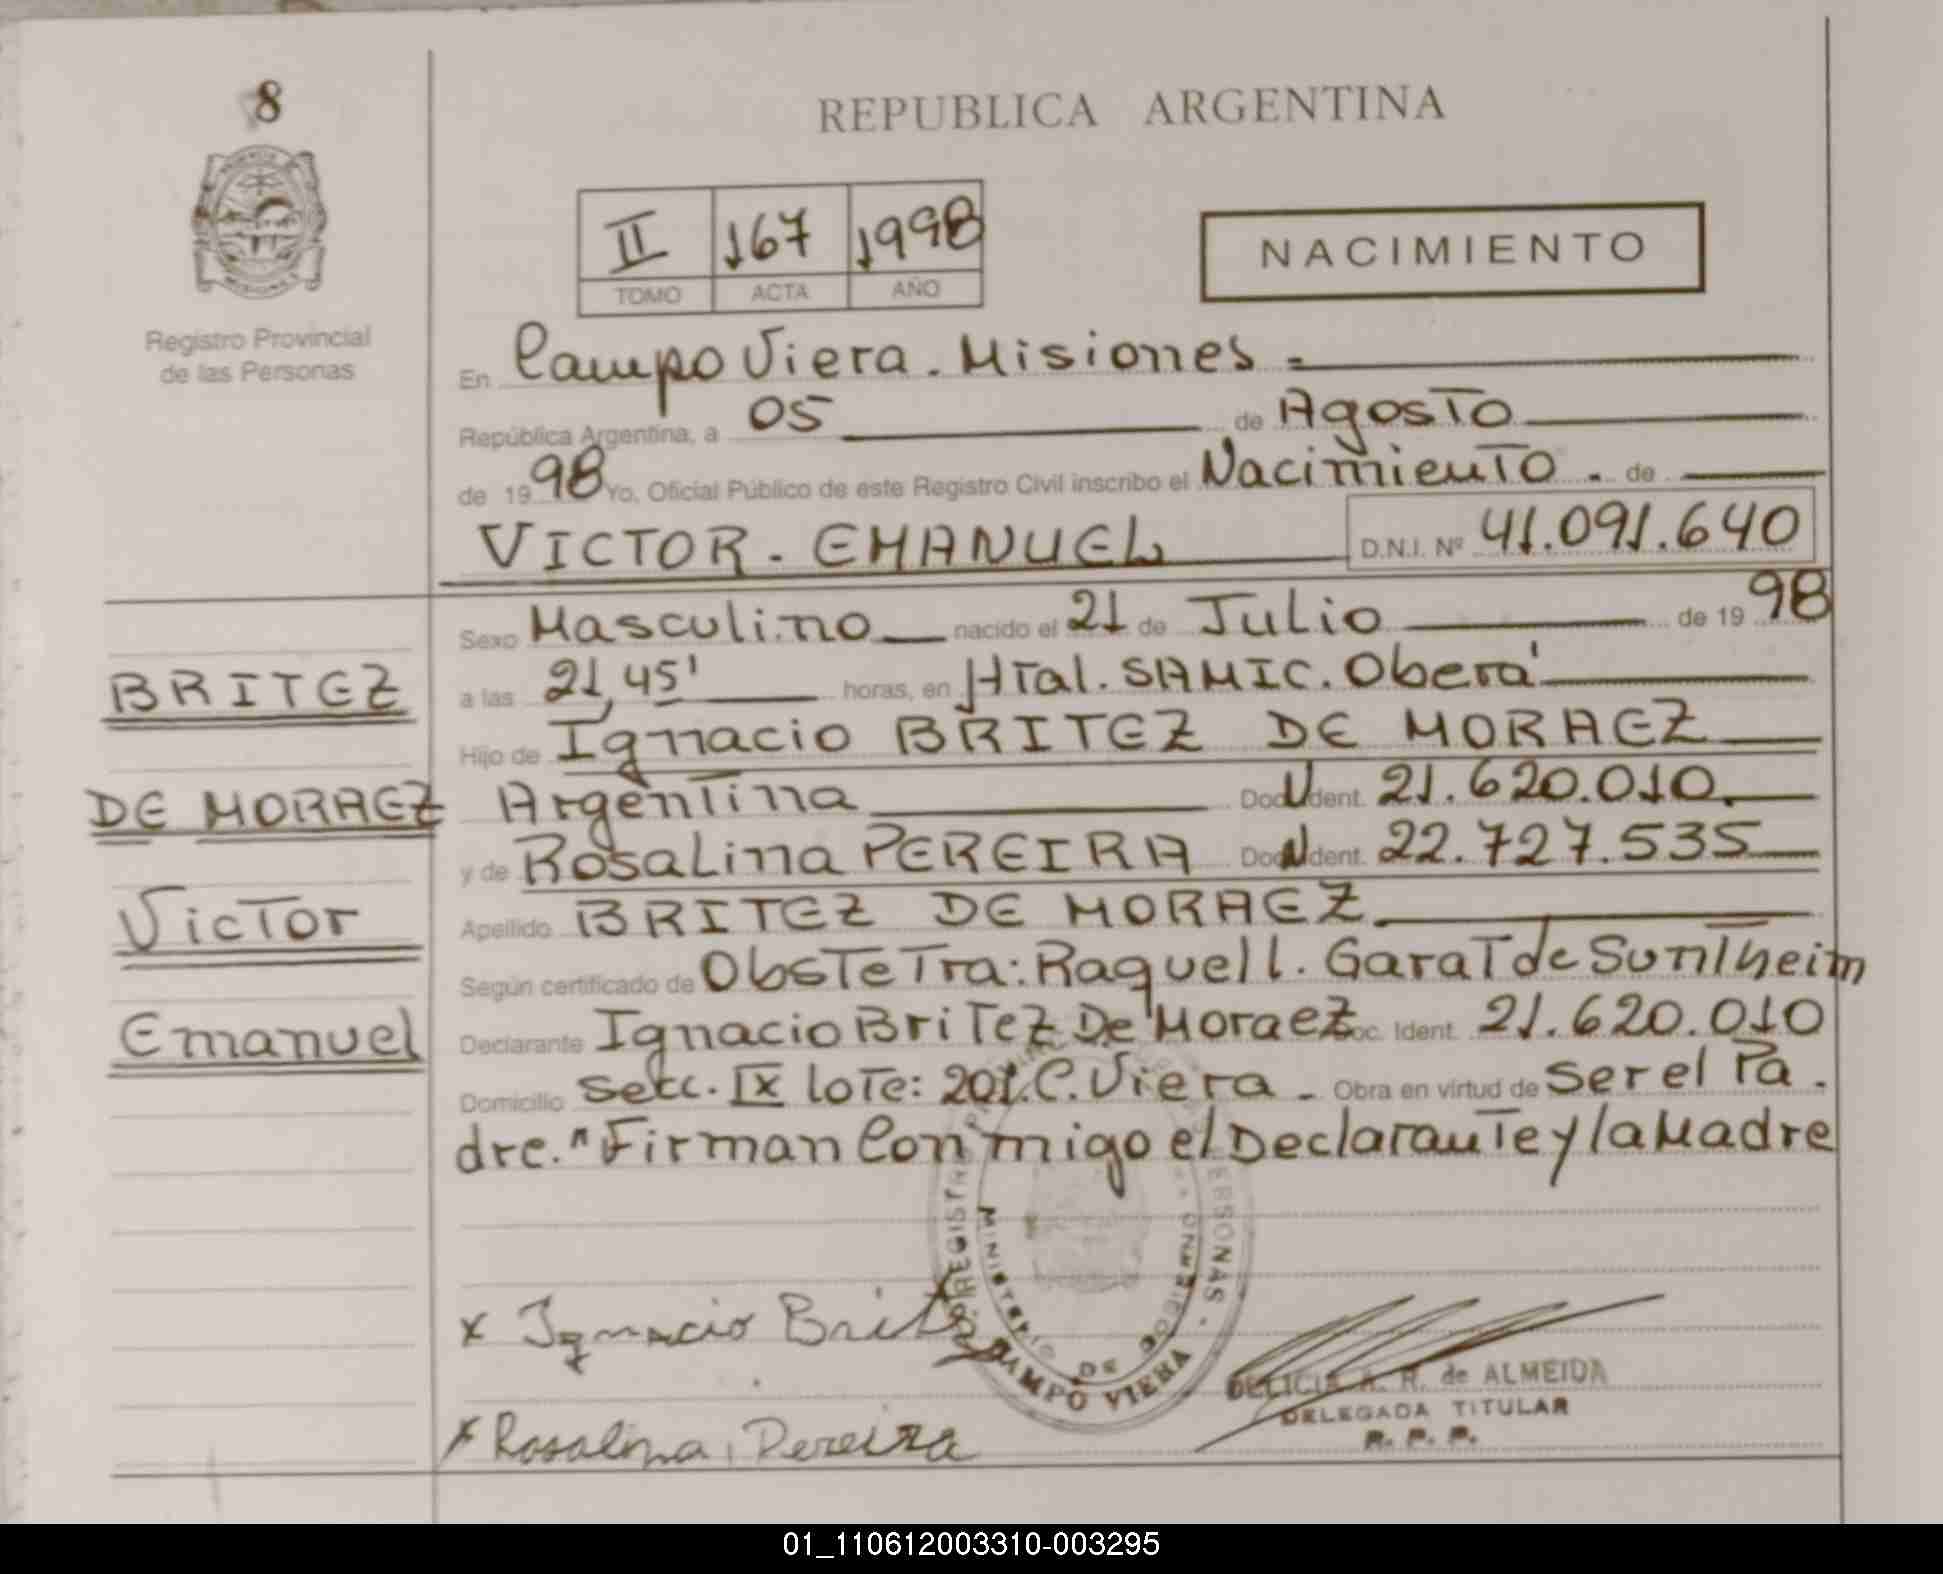 8
REPUBLICA ARGENTINA
II 167 1998
TOMO ACTA AÑO
NACIMIENTO
Registro Provincial
de las Personas
En Campo Viera. Misiones =
República Argentina, a 05 de Agosto
de 1998 Yo, Oficial Público de este Registro Civil inscribo el Nacimiento. de
VICTOR. EMANUEL D.N.I. Nº 41.091.640
Sexo Masculino nacido el 21 de Julio de 1998
a las 21,45' horas, en Htal. SAMIC. Oberá
Hijo de Ignacio BRITEZ DE MORAEZ
Argentina Doc. Ident. 21.620.010.
y de Rosalina PEREIRA Doc. Ident. 22.727.535
Apellido BRITEZ DE MORAEZ.
Según certificado de Obstetra: Raquel l. Garat de Suntheim
Declarante Ignacio Britez De Moraez Doc. Ident. 21.620.010
Domicilio Secc. IX lote: 201. C. Viera. Obra en virtud de Ser el Pa.
dre." Firman Conmigo el Declarante y la Madre
BRITEZ
DE MORAEZ
Victor
Emanuel
x Ignacio Britez
x Rosalina, Pereira
MINISTERIO DE GOBIERNO
CAMPO VIERA
DELICIA A. R. de ALMEIDA
DELEGADA TITULAR
R. P. P.
01_110612003310-003295